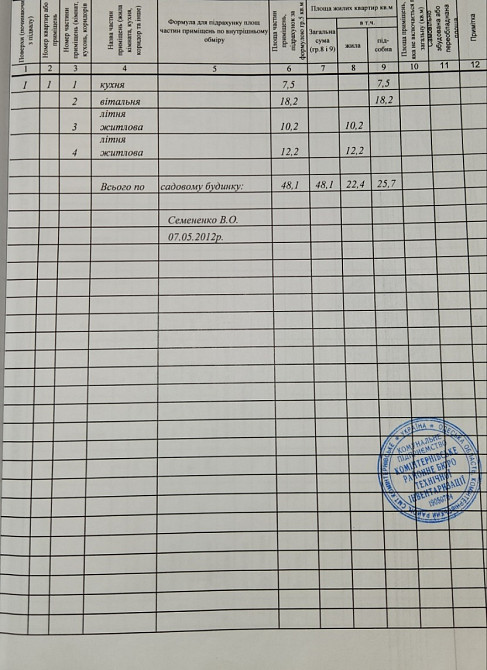 Поверхи (починаючи з підвалу)
Номер квартир або приміщень
Номер частини приміщень (кімнат, кухонь, коридорів
Назва частин приміщень (жила кімната, кухня, коридор та інше)
Формула для підрахунку площ частин приміщень по внутрішньому обміру
Площа частини приміщень, підрахунок за формулою гр.5 кв м
Площа жилих квартир кв.м
Загальна сума (гр.8 і 9)
в т.ч.
жила
під-собна
Площа приміщень, яка не включається в загальну (кв.м)
Самовільно збудована або переобладнана площа
Примітка
1 2 3 4 5 6 7 8 9 10 11 12
1 1 1 кухня 7,5 7,5
2 вітальня 18,2 18,2
літня
3 житлова 10,2 10,2
літня
4 житлова 12,2 12,2
Всього по садовому будинку: 48,1 48,1 22,4 25,7
Семененко В.О.
07.05.2012р.
УКРАЇНА ОДЕСЬКА ОБЛАСТЬ
КОМУНАЛЬНЕ
ПІДПРИЄМСТВО
КОМІНТЕРНІВСЬКЕ
РАЙОННЕ БЮРО
ТЕХНІЧНОЇ
ІНВЕНТАРИЗАЦІЇ